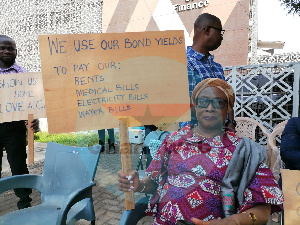 Finance
WE USE OUR BOND YIELDS
TO PAY OUR:
RENTS
MEDICAL BILLS
ELECTRICITY BILLS
WATER BILLS